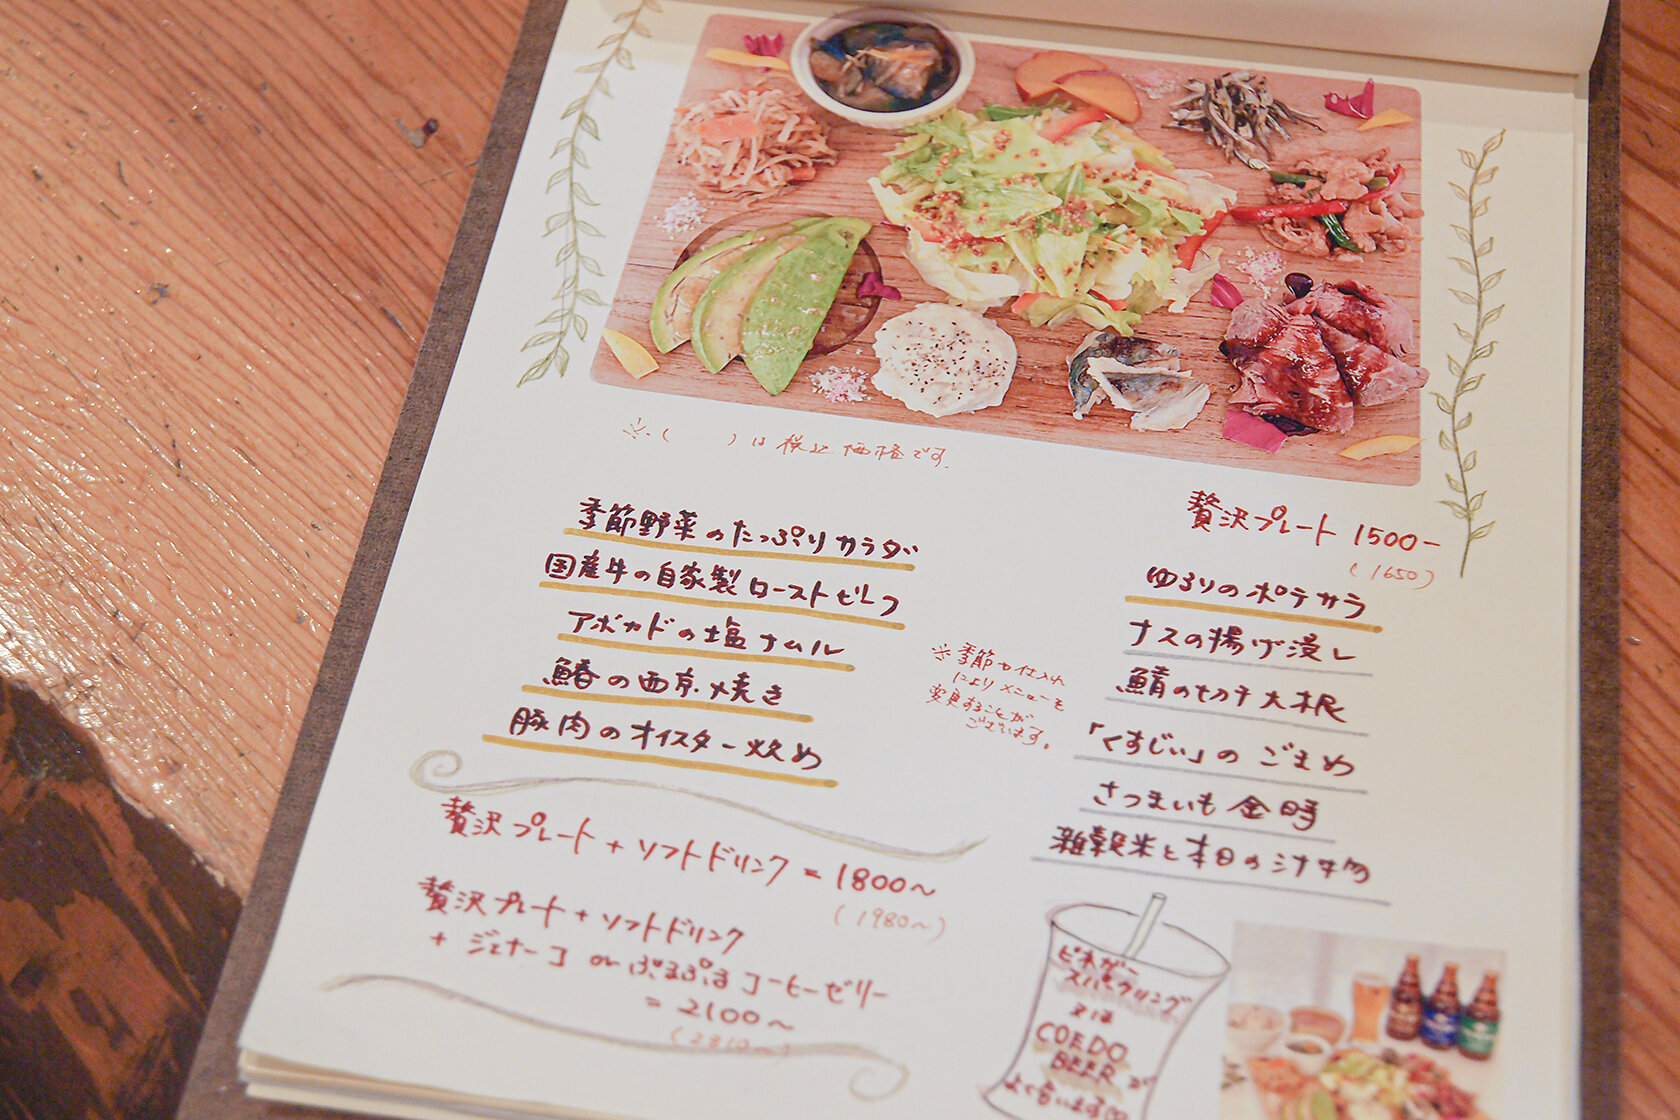 ※( )は税込価格です。
季節野菜のたっぷりサラダ
国産牛の自家製ローストビーフ
アボカドの塩ナムル
鰆の西京焼き
豚肉のオイスター炒め
※季節や仕入れ
によりメニューを
変更することが
ございます。
贅沢プレート 1500-
(1650)
ゆるりのポテサラ
ナスの揚げ浸し
鯖の切干大根
「くすじい」のごまめ
さつまいも金時
雑穀米と本日の汁物
贅沢プレート+ソフトドリンク=1800〜
(1980〜)
贅沢プレート+ソフトドリンク
+ジェラート or ぷるぷるコーヒーゼリー
=2100〜
(2310〜)
ビネガー
スパークリング
又は
COEDO
BEERが
よく合います♡